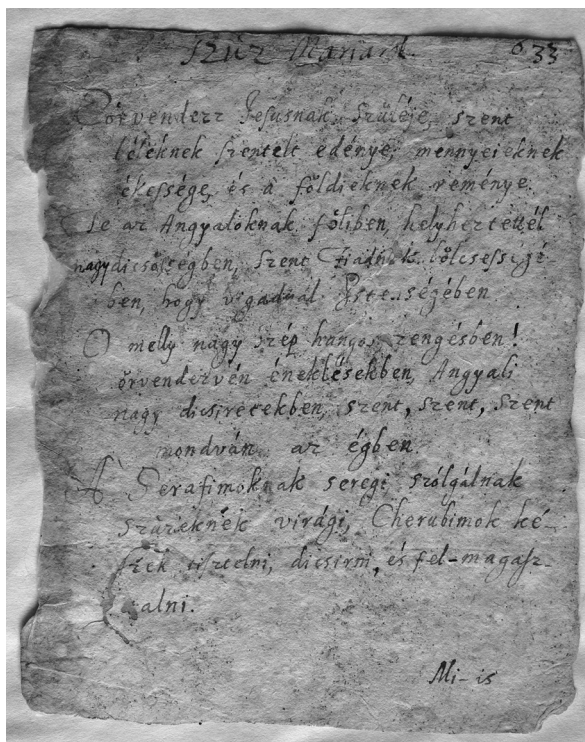 Szűz Mariaról. 633
Örvendezz Jesusnak Szűléje, szent
léleknek szentelt edénye, mennyeieknek
ékessége, és a' földieknek reménye.
Te az Angyaloknak föliben, helyheztettél
nagy dissősségben, szent Fiadnak bölcsességé
ben, hogy vigadnál Istenségében
O melly nagy szép hangos zengésben!
örvendezvén éneklésekben, Angyali
nagy dicsiretekben, szent, szent, szent
mondván az égben.
A' Serafimoknak seregi szólgálnak
szűzeknek virági, Cherubimok ké-
szek tisztelni, dicsirni, és fel-magasz-
talni.
Mi-is